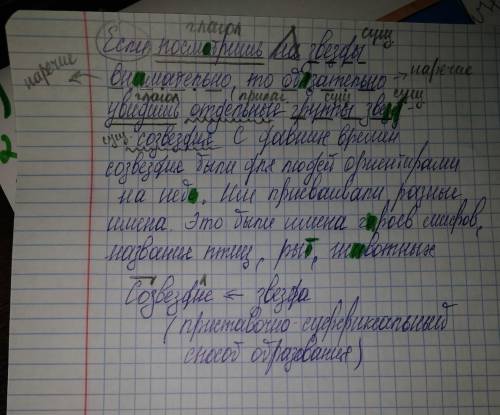 глагол
Если посмотришь на звезды сущ
наречие внимательно, то обязательно → наречие
глагол прилаг сущ сущ
увидишь отдельные группы звезд
сущ созвездие С давних времен
созвездие были для людей ориентирами
на небе. Им присваивали разные
имена. Это были имена героев мифов,
названия птиц, рыб, животных
Созвездие ← звезда
(приставочно-суффиксальный
способ образования)